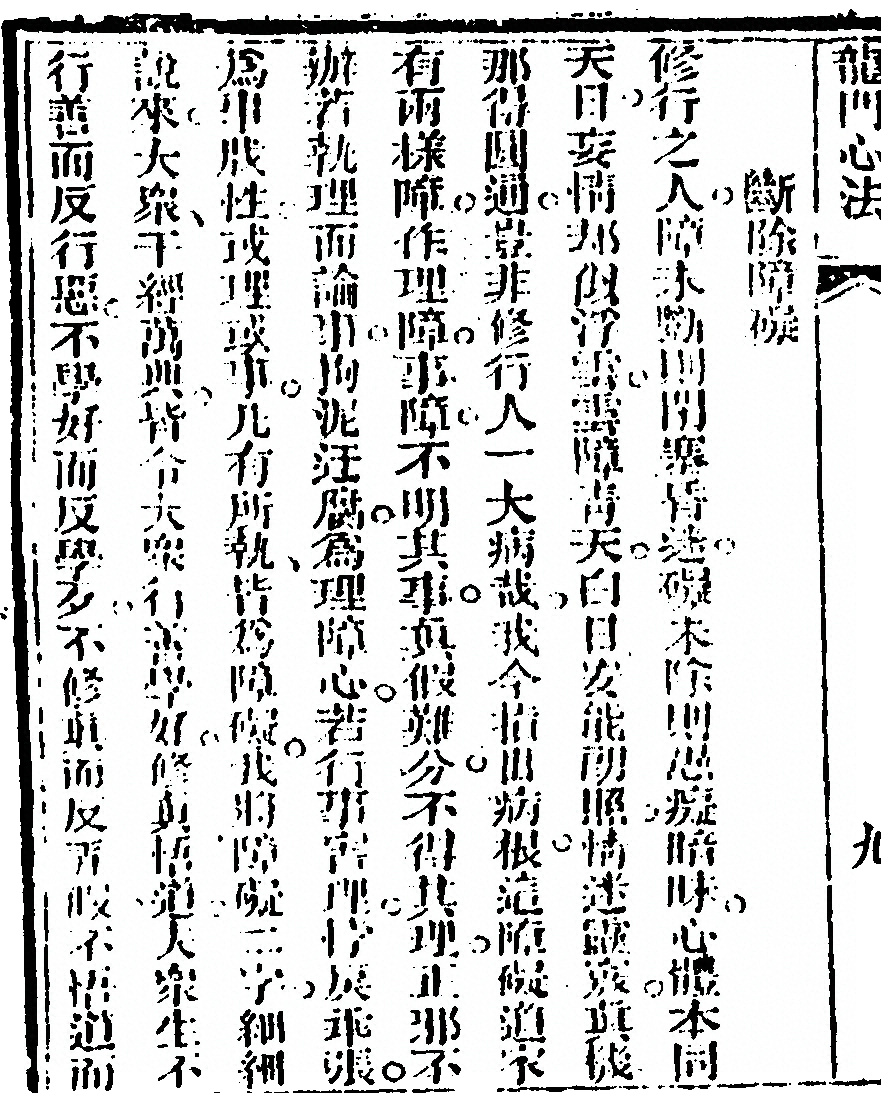 龍門心法
九
斷除障礙
修行之人障未勤則閉塞昏迷礙未除則愚癡暗昧心體本同
天日妄情却似浮雲雲障青天白日安能朗照情迷靈衷真機
那得圓通豈非修行人一大病哉我今指出病根這障礙道家
有兩樣障作理障事障不明其事真假難分不得其理正邪不
辦若執理而論事拘泥迂腐爲理障心若行事害理悖戾乖張
爲事成性或理或事凡有所執皆爲障礙我將障礙二字細細
說來大衆千經萬典皆令大衆行善學好修真悟道大衆生不
行善而反行惡不學好而反學歹不修真而反弄假不悟道而